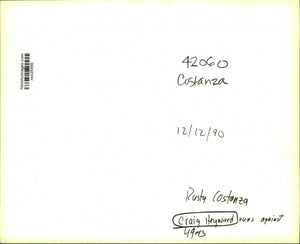 42060
Costanza
12/12/90
Rusty Costanza
Craig Heyward runs against
49ers